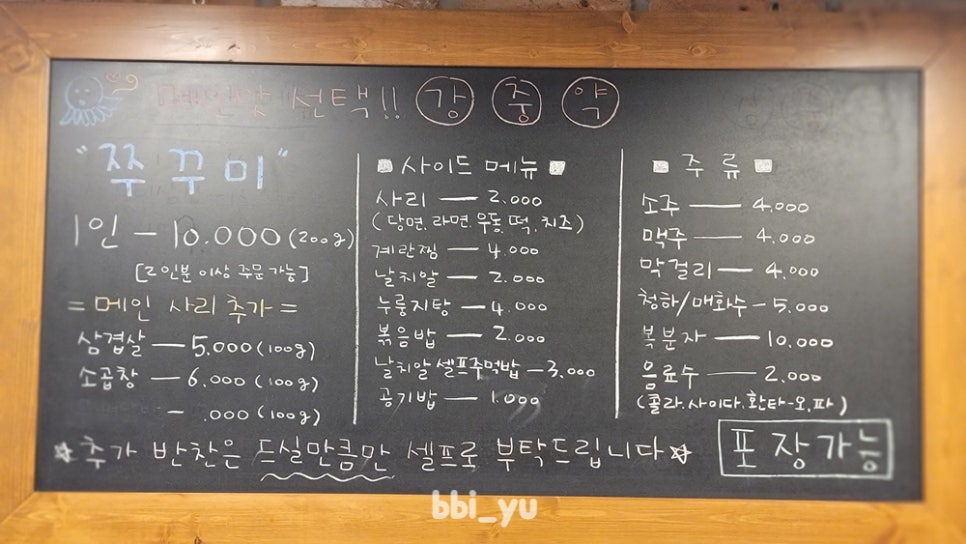 매운맛 선택!! 강 중 약
"쭈꾸미"
1인 - 10.000 (200g)
[2인분 이상 주문 가능]
= 메인 사리 추가 =
삼겹살 - 5.000 (100g)
소곱창 - 6.000 (100g)
- .000 (100g)
사이드 메뉴
사리 - 2.000
(당면.라면.우동.떡.치즈)
계란찜 - 4.000
날치알 - 2.000
누룽지탕 - 4.000
볶음밥 - 2.000
날치알 셀프주먹밥 - 3.000
공기밥 - 1.000
주류
소주 - 4.000
맥주 - 4.000
막걸리 - 4.000
청하/매화수 - 5.000
복분자 - 10.000
음료수 - 2.000
(콜라.사이다.환타-오.파)
☆추가 반찬은 드실만큼만 셀프로 부탁드립니다☆
포장가능
bbi_yu